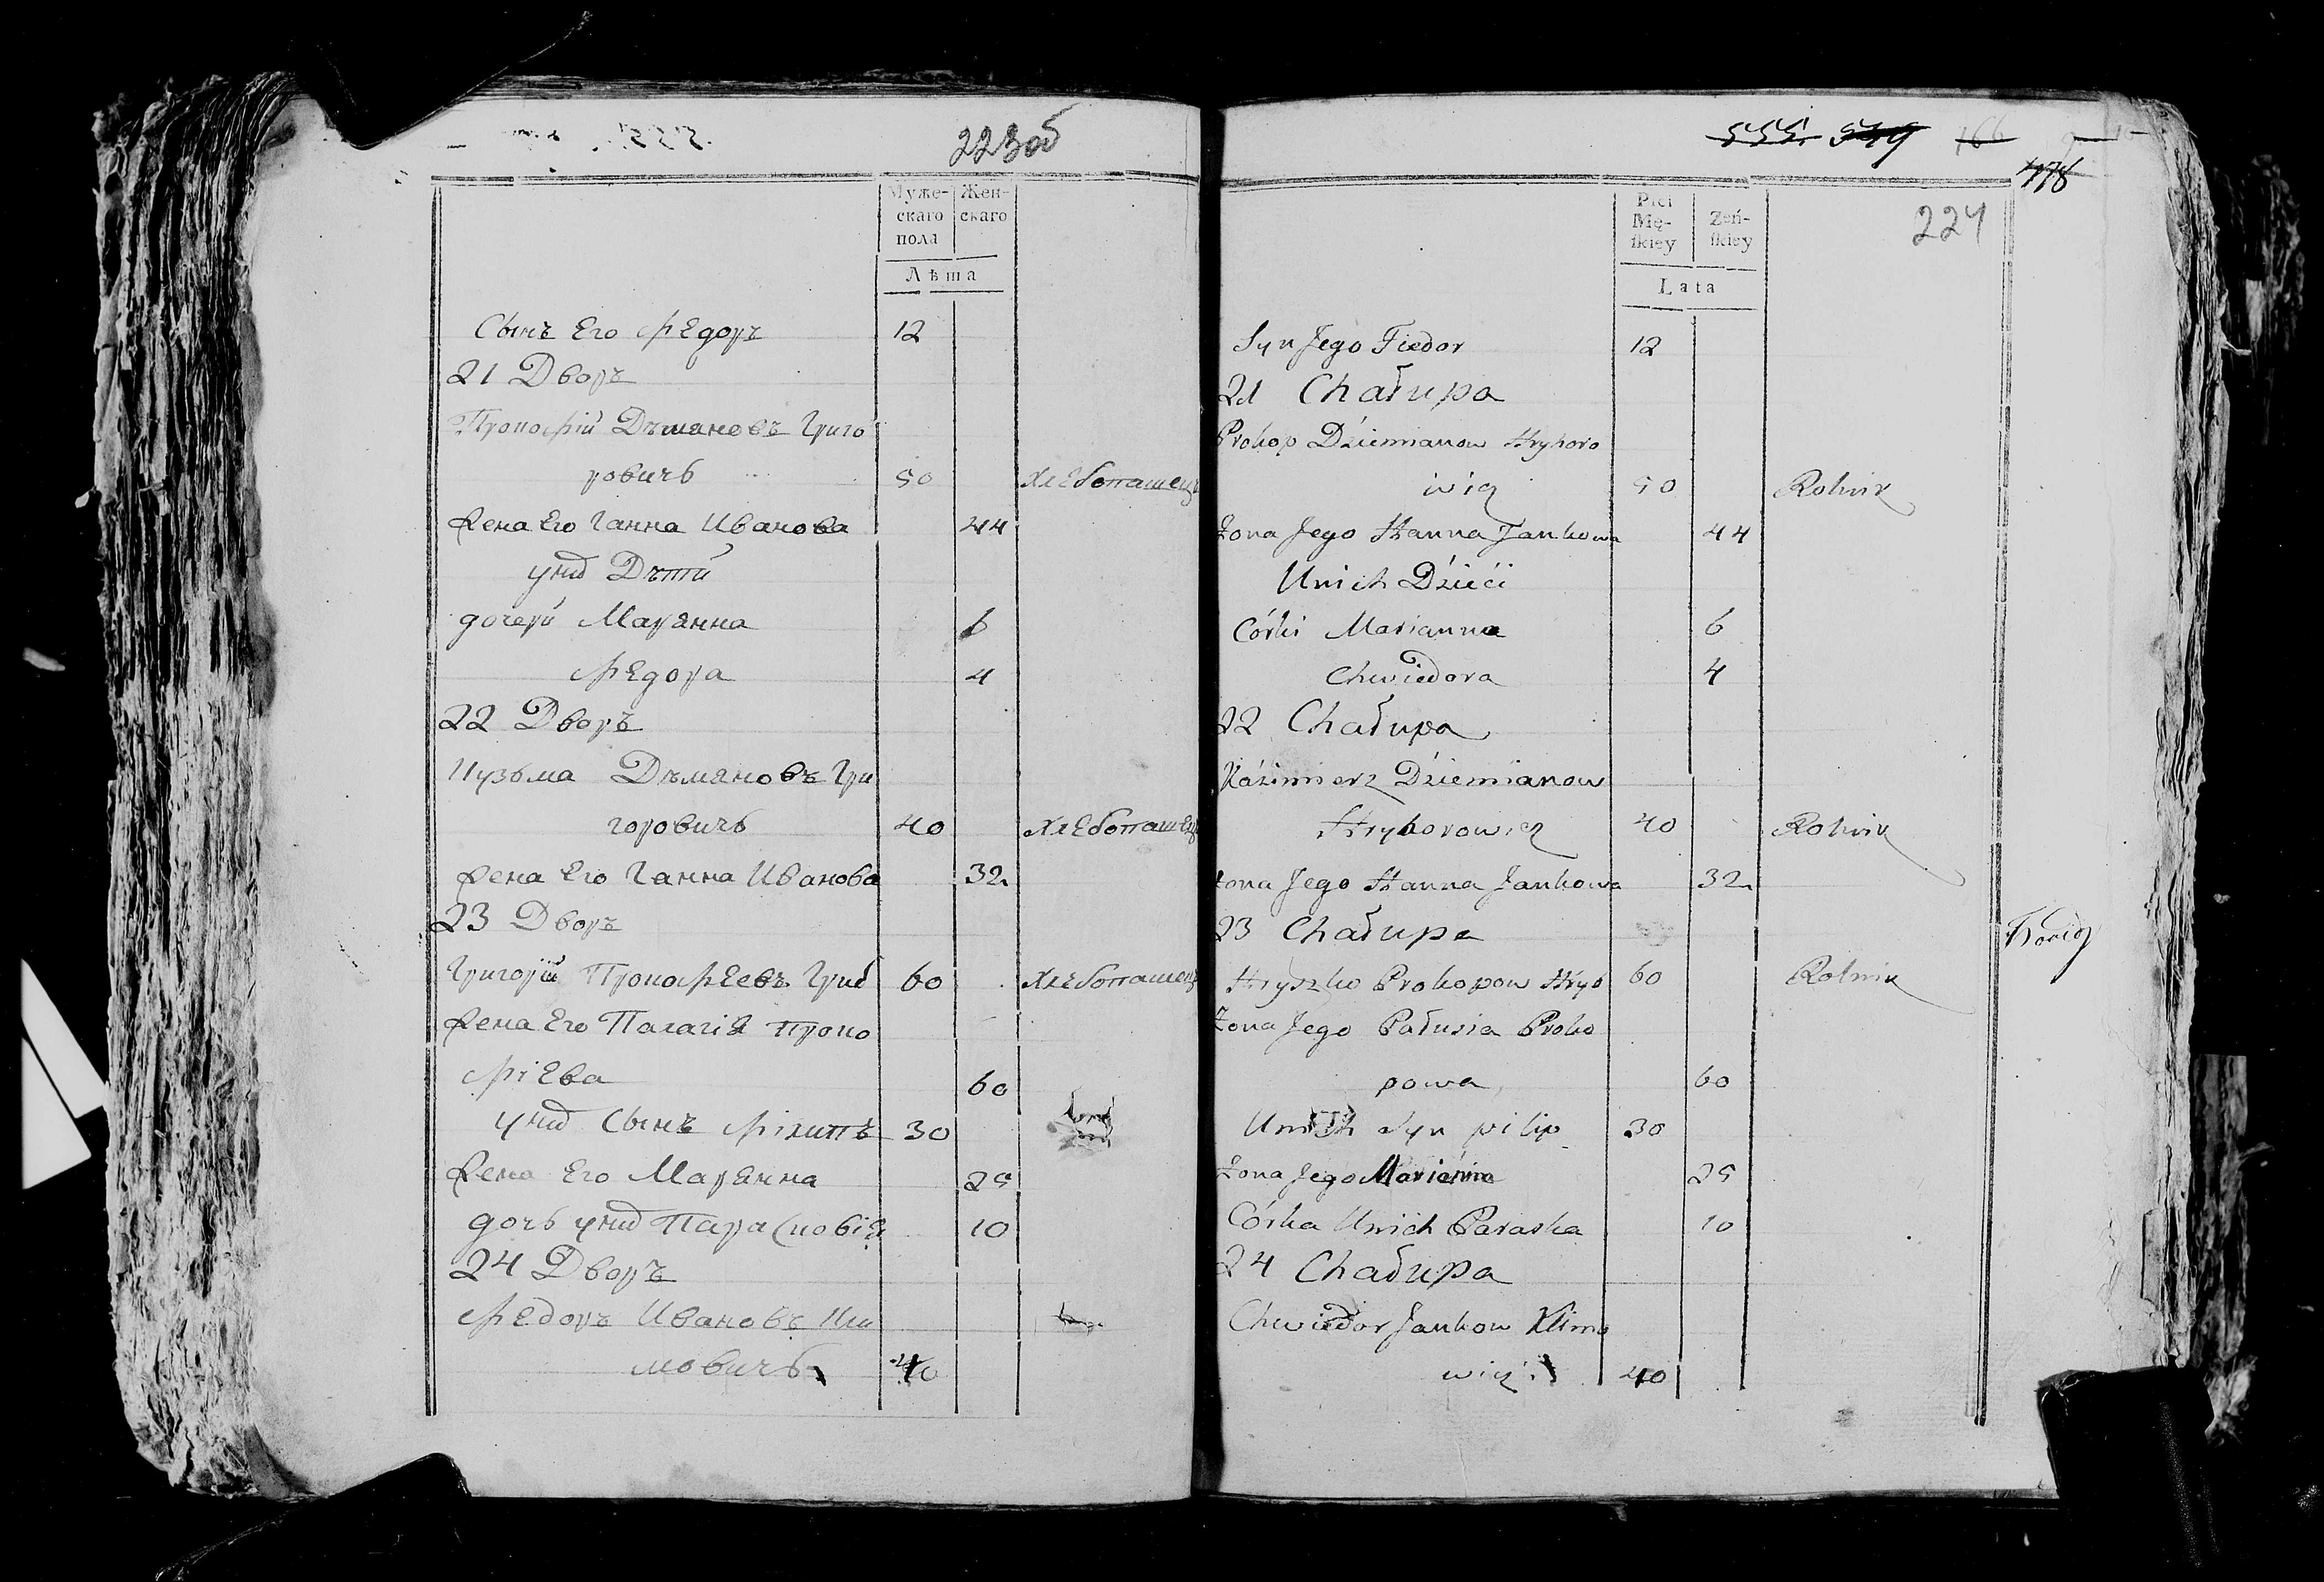 223об
Муже-
скаго
пола
Жен-
скаго
Лѣта
Сынъ Его Федоръ 12
21 Дворъ
Прокофій Дѣмяновъ Григо
ровичъ 50 Хлебопашецъ
Жена Его Ганна Иванова 44
у них Дѣти
дочери Марянна 6
Федора 4
22 Дворъ
Кузьма Дѣмяновъ Гри
горовичъ 40 Хлебопашецъ
Жена Его Ганна Иванова 32
23 Дворъ
Григорій Прокофеевъ Гриб 60 Хлебопашецъ
Жена Его Палагія Проко
фіева 60
у них Сынъ Філипъ 30
Жена Его Марянна 25
дочь у них Парасковія 10
24 Дворъ
Федоръ Ивановъ Кли
мовичъ 40
555. 549 166
478
224
Płci
Mę-
ſkiey
Żeń-
ſkiey
Lata
Syn Jego Fiedor 12
21 Chałupa
Prokop Dziemianow Hryhoro
wicz 50 Rolnik
Żona Jego Hanna Jankowa 44
Unich Dzieci
Córki Marianna 6
Chwiedora 4
22 Chałupa
Kaźimierz Dziemianow
Hryhorowicz 40 Rolnik
Żona Jego Hanna Jankowa 32
23 Chałupa
Hryszko Prokopow Hryb 60 Rolnik
Żona Jego Pałusia Proko
powa 60
Unich Syn pilip 30
Żona Jego Marianna 25
Córka Unich Paraska 10
24 Chałupa
Chwiedor Jankow Klimo
wicz 40